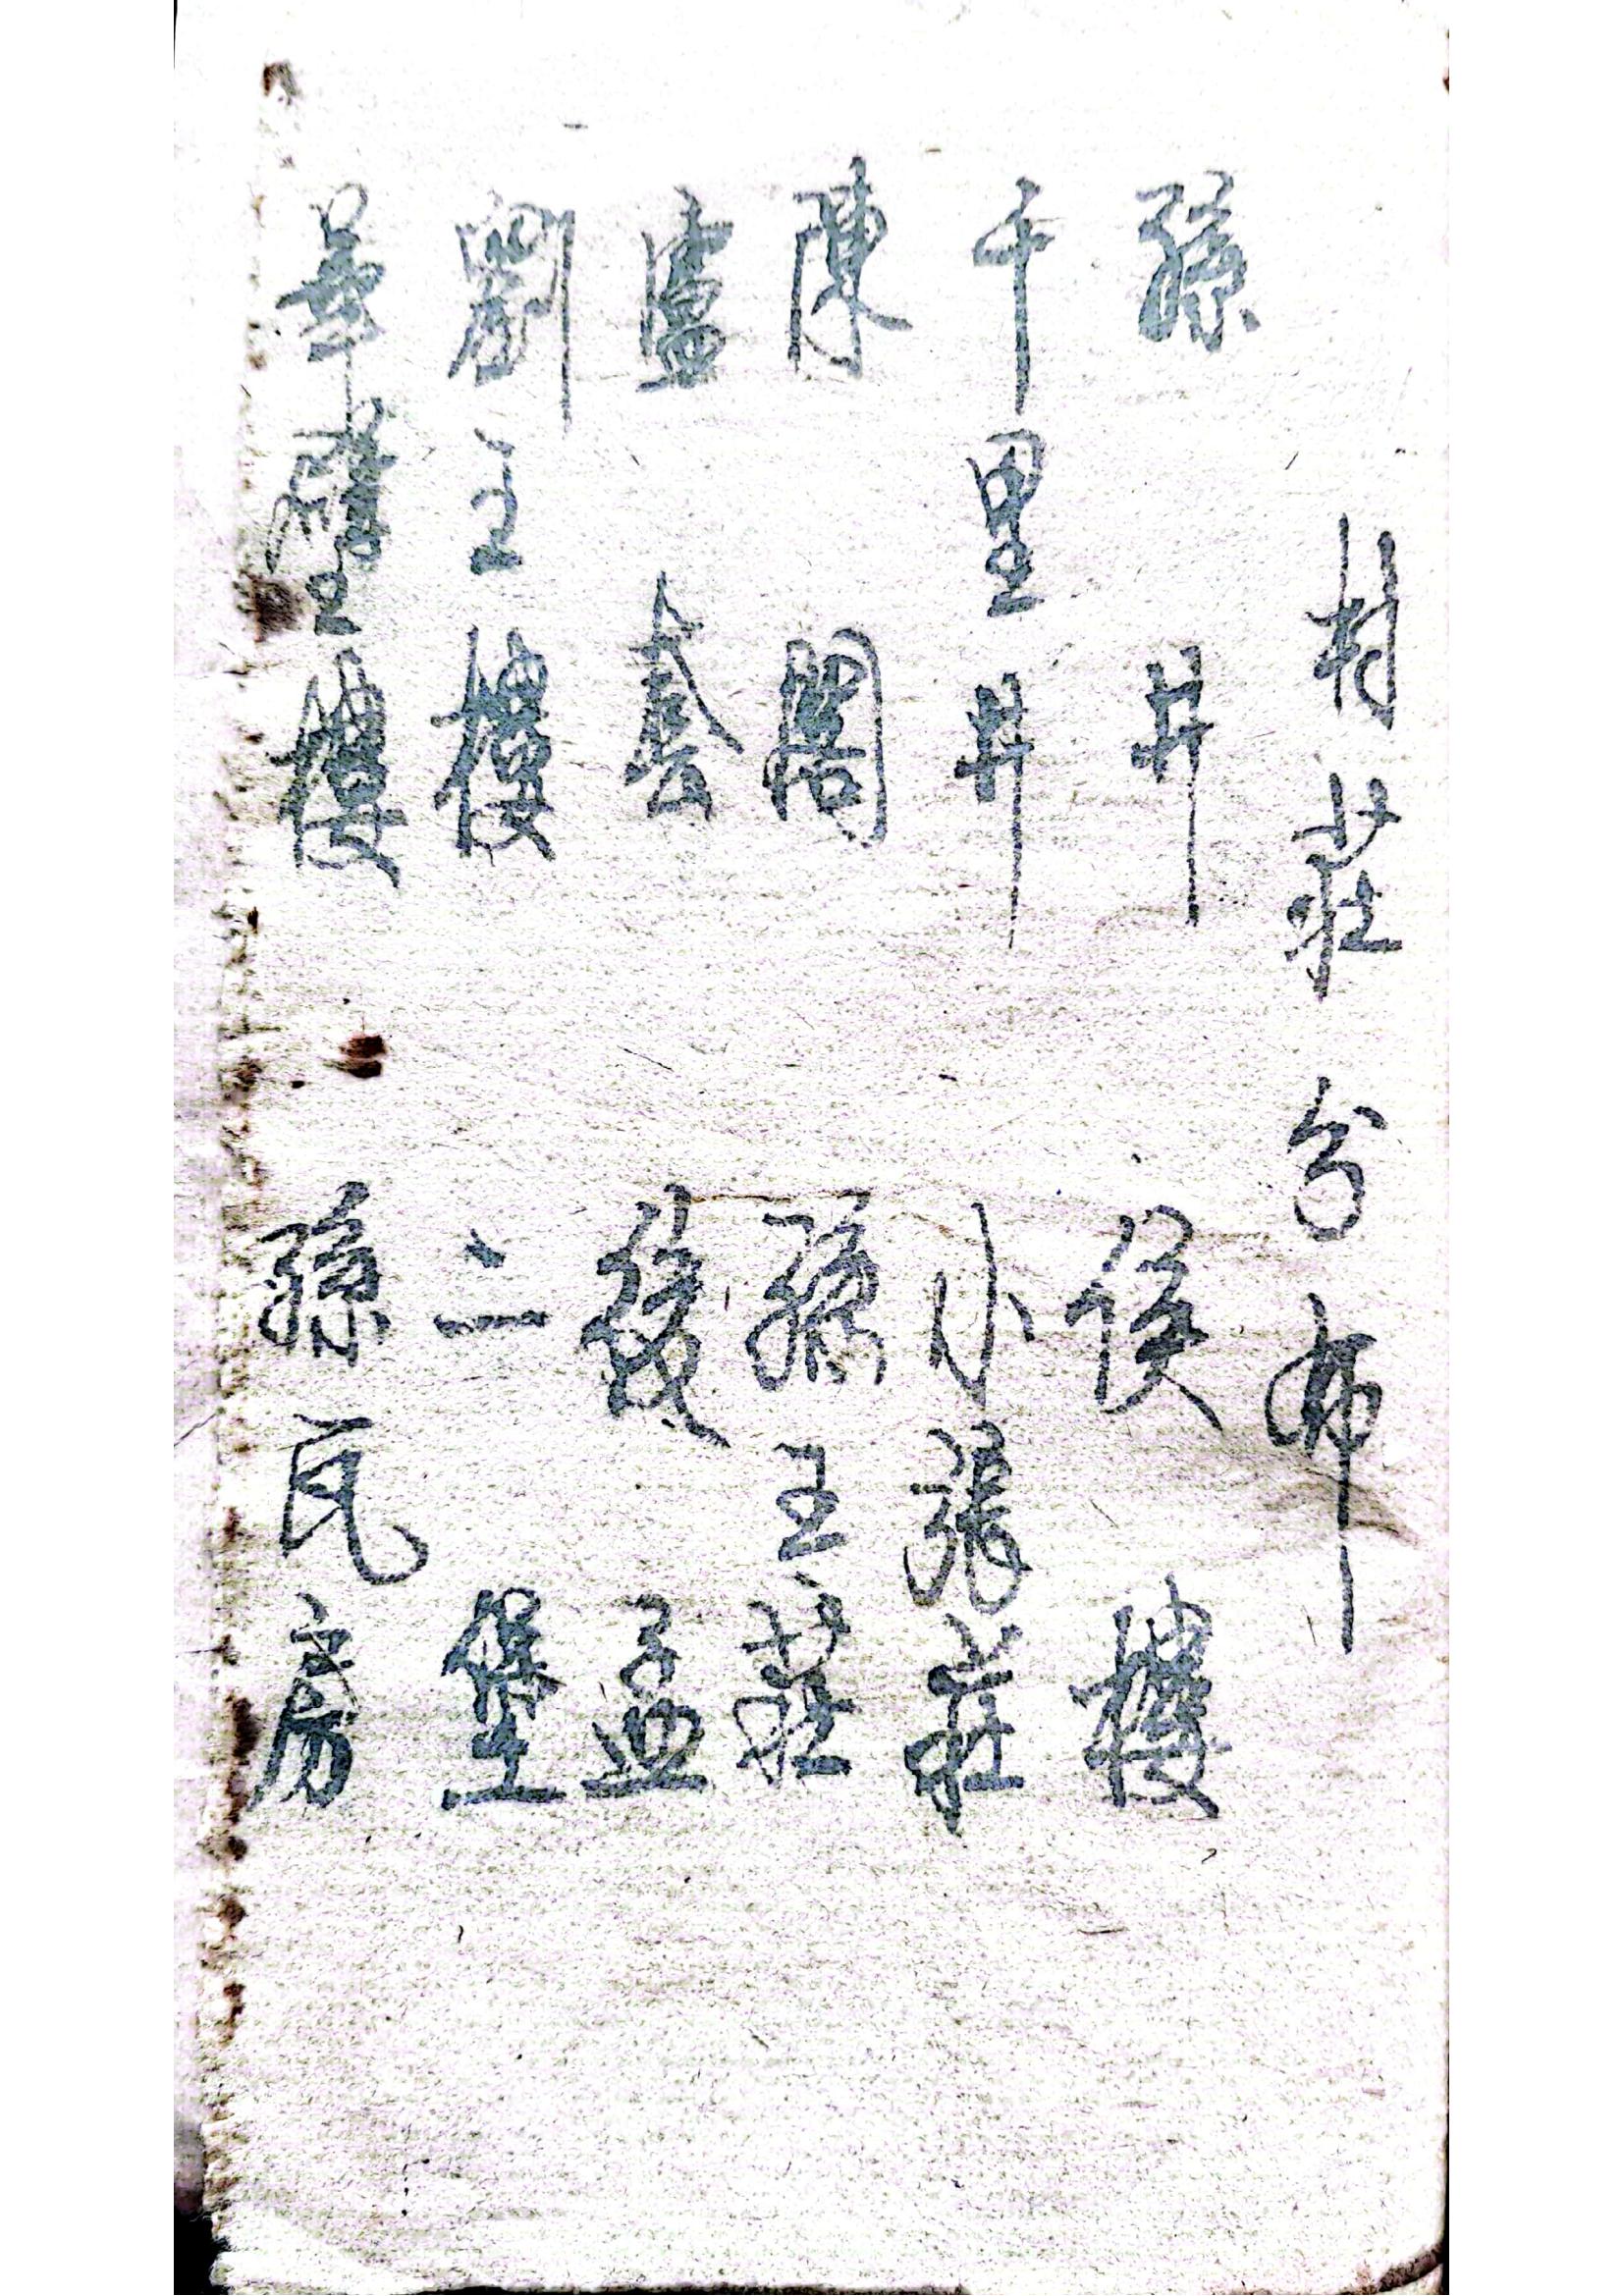 村莊分布
孫井 侯樓
千里井 小張莊
陳閣 孫王莊
盧套 後孟
劉主樓 二堡
樓 孫瓦房